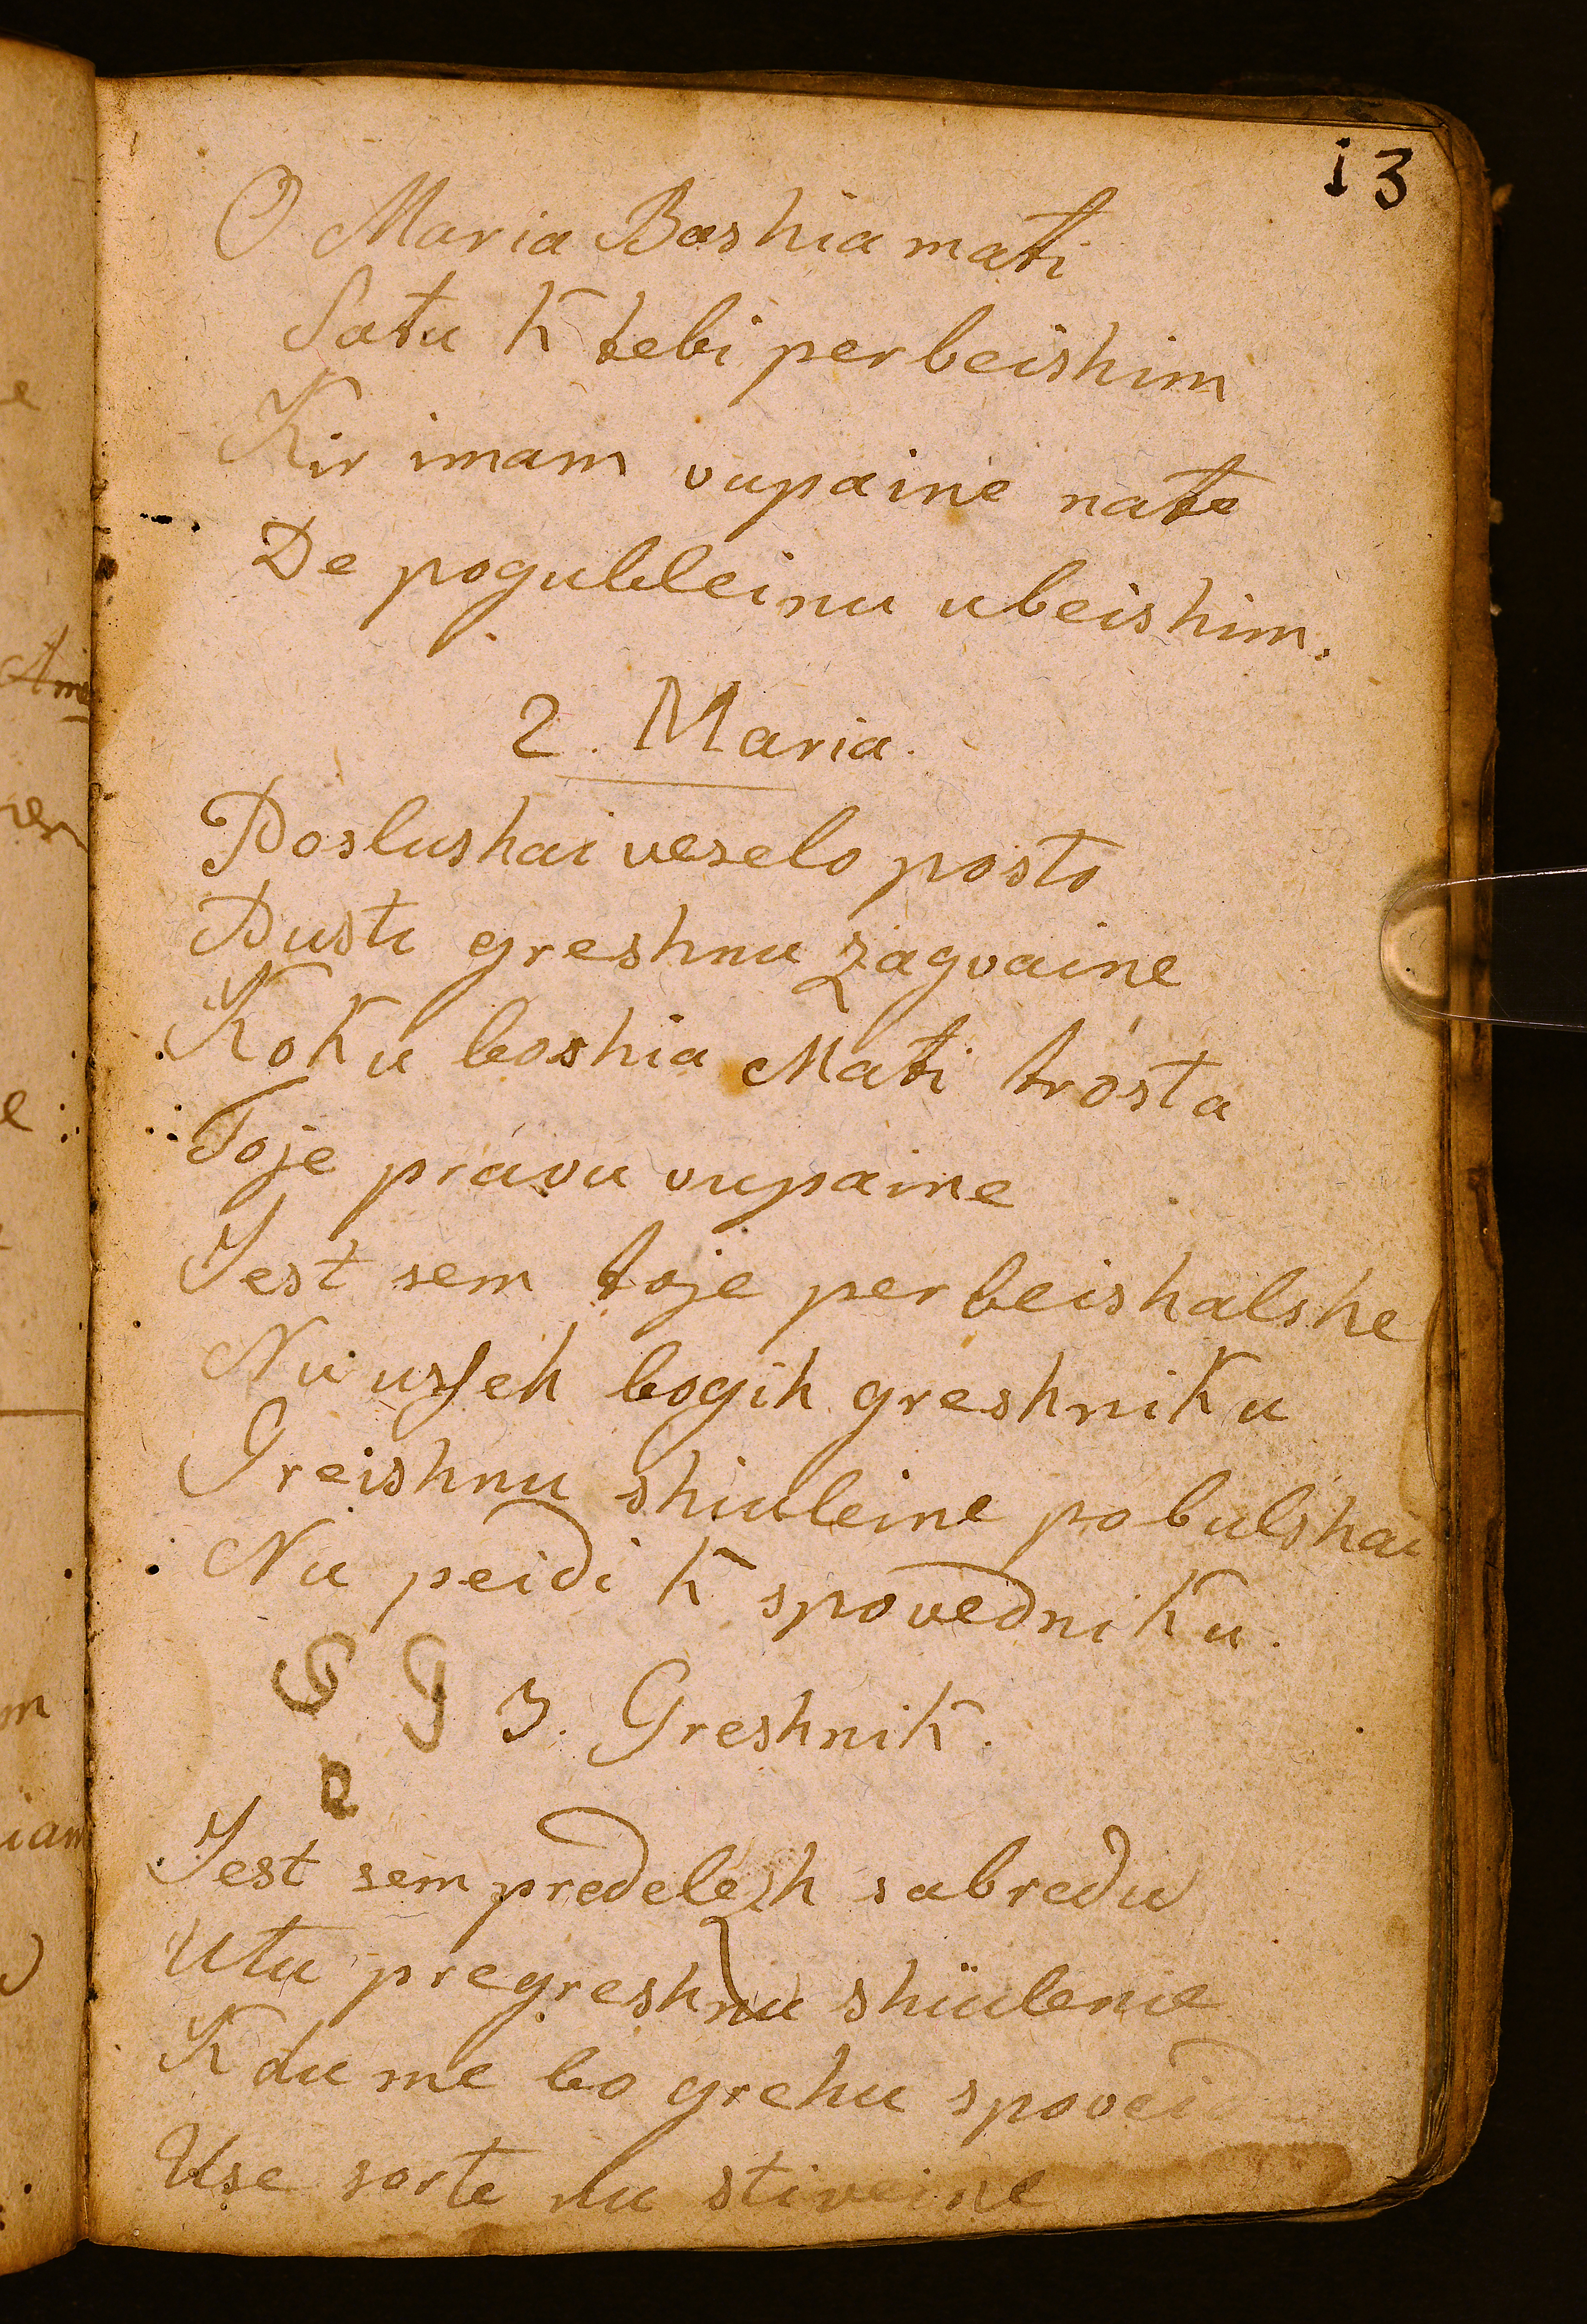 13
O Maria Boshia mati
Satu K tebi perbeishim
Kir imam vupaine nate
De pogubleinu ubeishim.
2. Maria.
Poslushai veselo posto
Dusti greshnu zagvaine
Koku boshia Mati trosta
Toje pravu vupaine
Jest sem toje perbeishalshe
Nu usseh bogih greshniku
Greishnu shiuleine pobulshai
Nu peidi K spovedniku.
3. Greshnik.
Jest sem predelezh sabredu
Utu pregreshnu shiulenie
Kdu me bo grehu spoveid
Use sorte nu stiveine